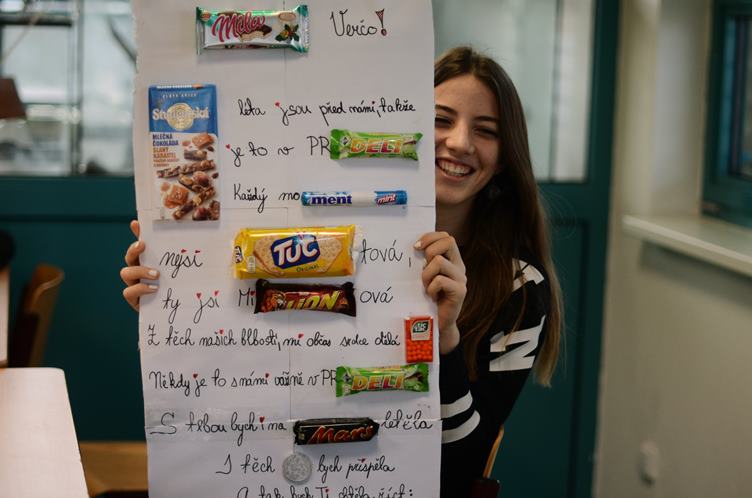 Mila Verčo!
Studentská
MLÉČNÁ ČOKOLÁDA SLANÝ KARAMEL
léta jsou před námi, takže
je to v PR DELI
Každý mo ment mint
nejsi TUC ORIGINAL tová,
ty jsi Mi LION ová
Z těch našich blbostí, mi občas srdce dělá tic tac
Někdy je to s námi vážně v PR DELI
S tebou bych i na Mars letěla
I těch bych přispěla
A tak bych Ti chtěla říct:
N